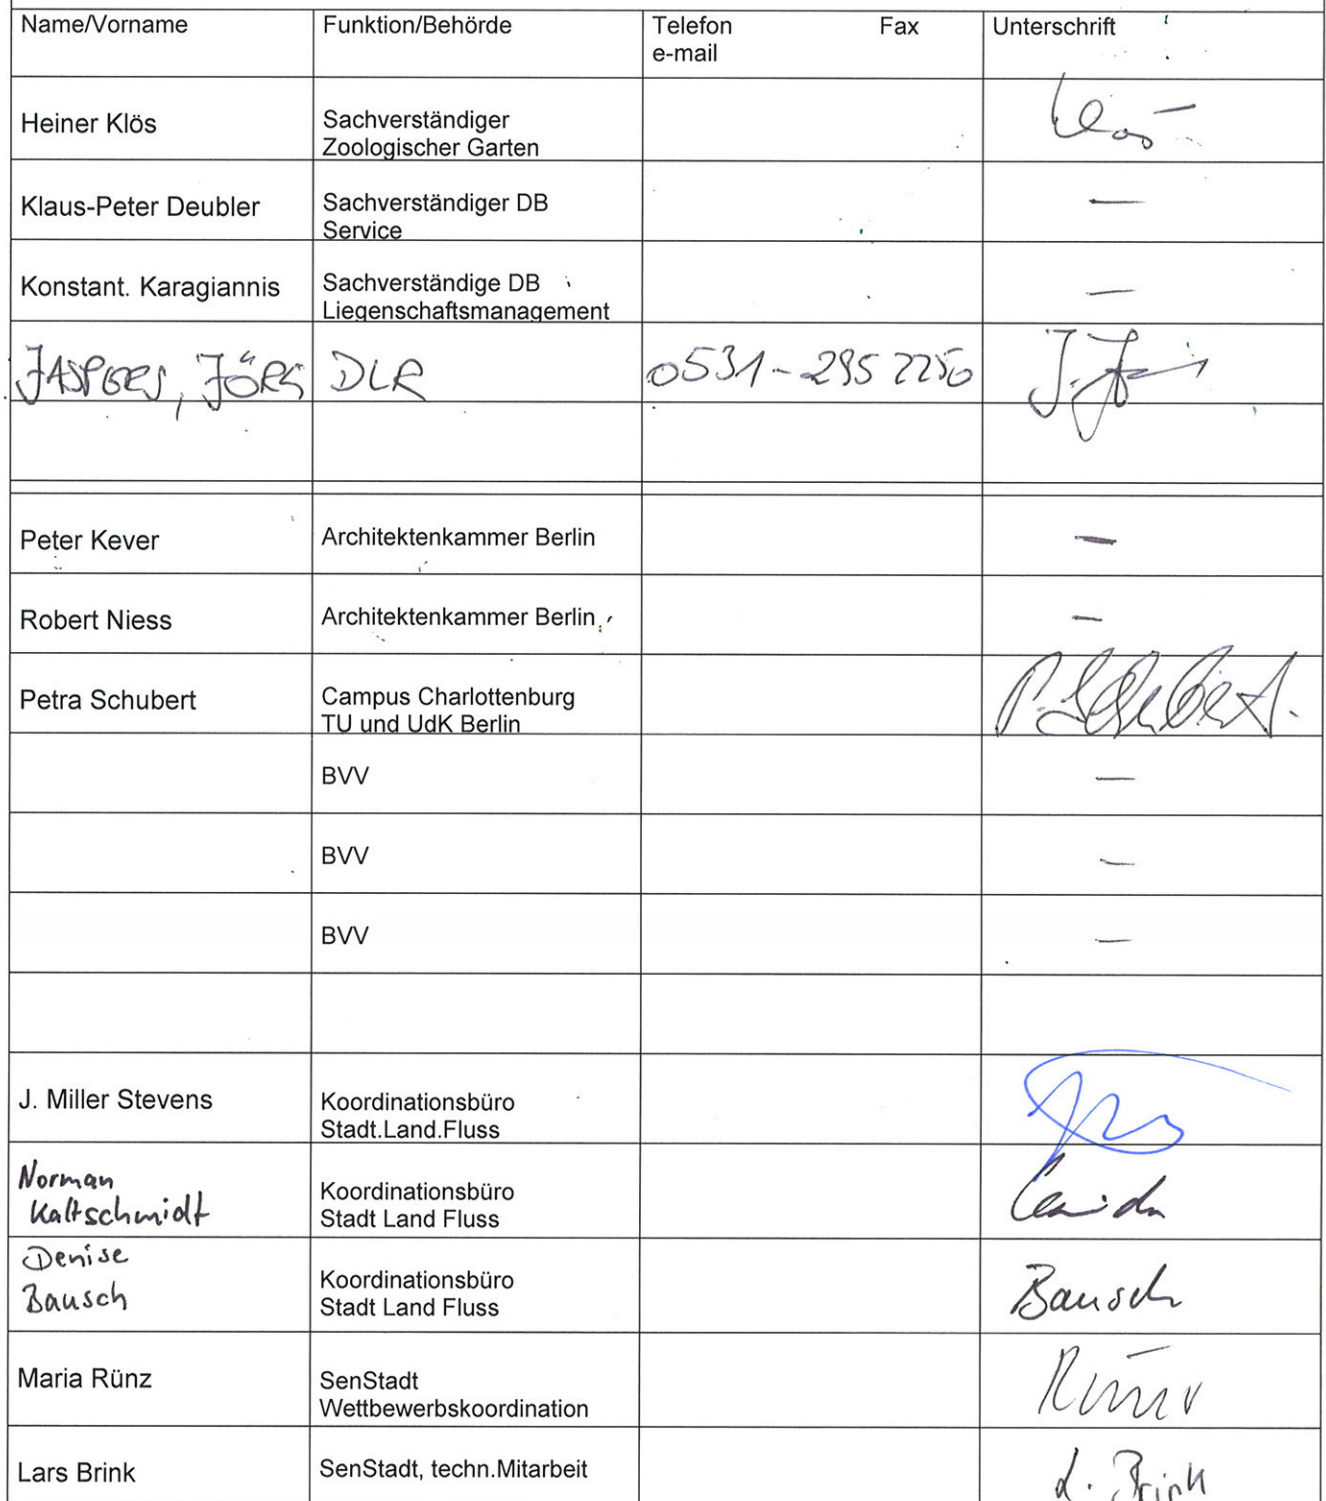 Name/Vorname Funktion/Behörde Telefon Fax Unterschrift
e-mail
Heiner Klös Sachverständiger
Zoologischer Garten
Klaus-Peter Deubler Sachverständiger DB —
Service
Konstant. Karagiannis Sachverständige DB —
Liegenschaftsmanagement
JASPERS, JÖRG DLR 0531-295 2250
Peter Kever Architektenkammer Berlin —
Robert Niess Architektenkammer Berlin —
Petra Schubert Campus Charlottenburg P. Schubert.
TU und UdK Berlin
BVV —
BVV —
BVV —
J. Miller Stevens Koordinationsbüro
Stadt.Land.Fluss
Norman
Kaltschmidt Koordinationsbüro
Stadt Land Fluss
Denise
Bausch Koordinationsbüro Bausch
Stadt Land Fluss
Maria Rünz SenStadt Rünz
Wettbewerbskoordination
Lars Brink SenStadt, techn.Mitarbeit L. Brink